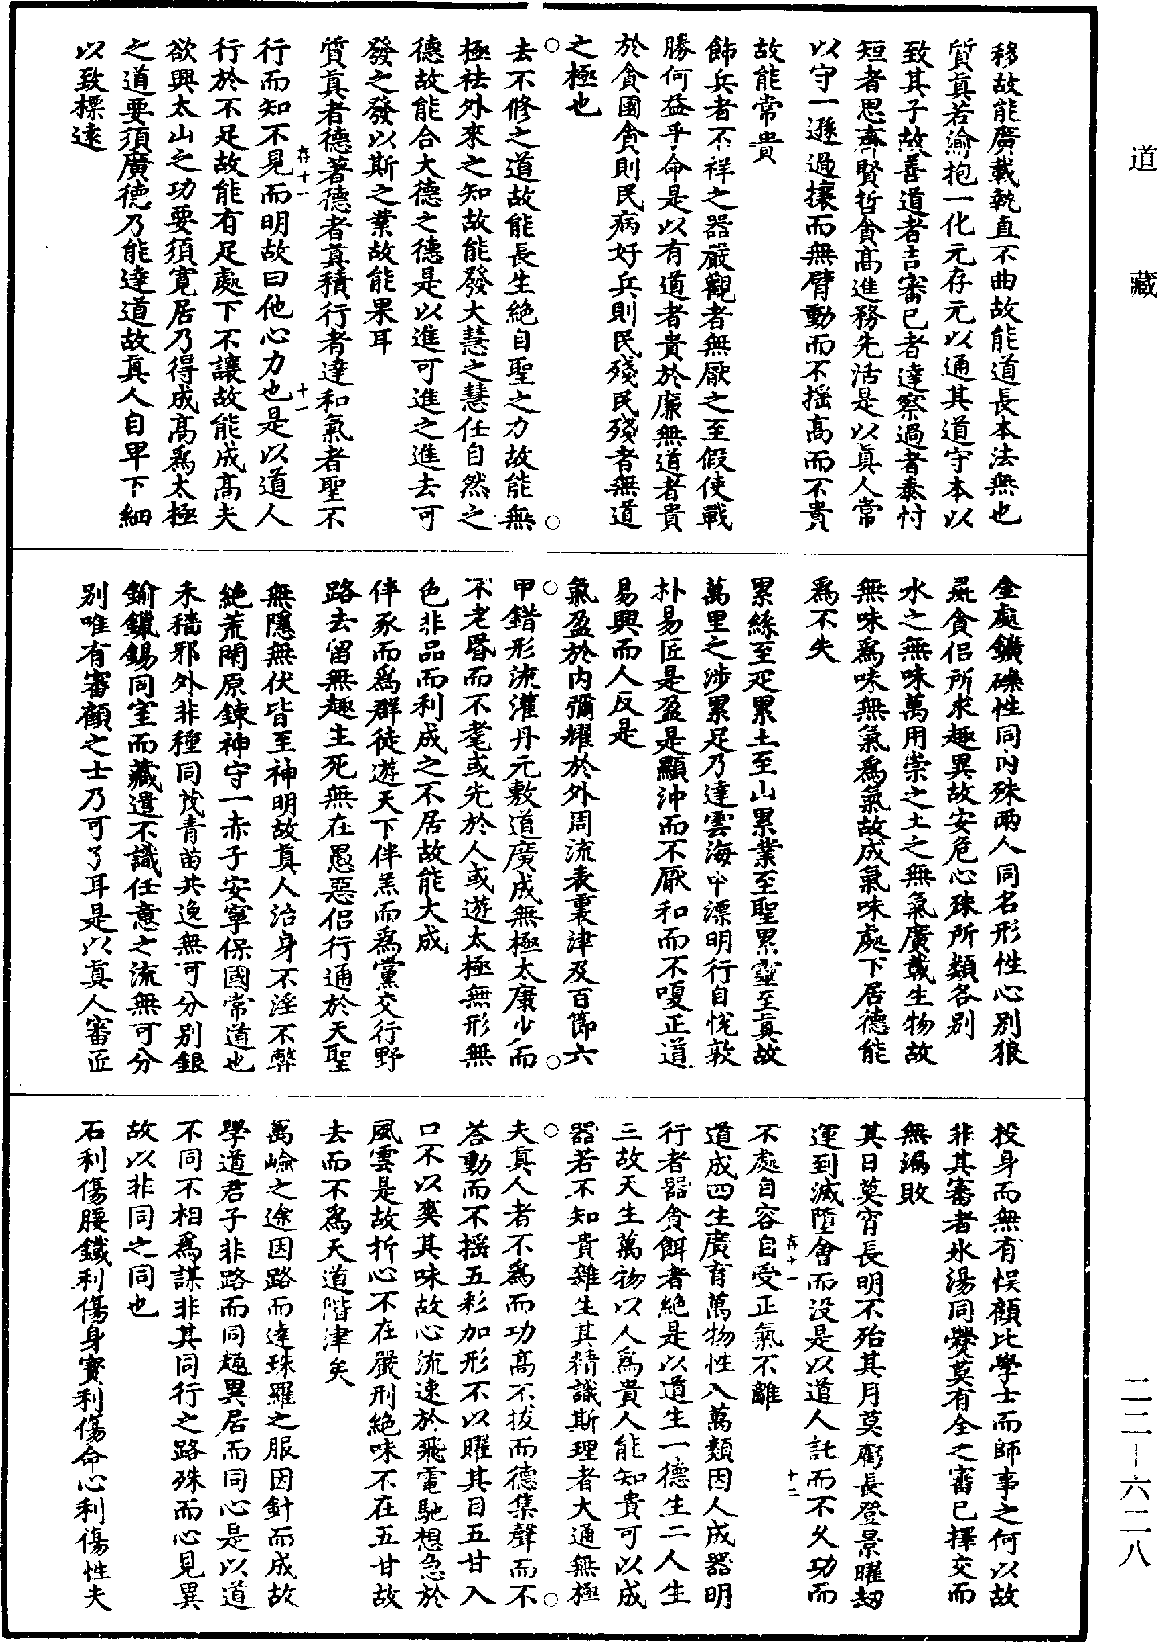 道藏
移故能廣載執直不曲故能道長本法無也
質真若渝抱一化元存元以通其道守本以
致其子故善道者吉審已者達察過者泰忖
短者思齊賢哲貪高進務先活是以真人常
以守一遜過攘而無臂動而不搖高而不貴
故能常貴
飾兵者不祥之器嚴觀者無厭之至假使戰
勝何益乎命是以有道者貴於廉無道者貴
於貪國貪則民病好兵則民殘民殘者無道
之極也
去不修之道故能長生絕自聖之力故能無
極袪外來之知故能發大慧之慧任自然之
德故能合大德之德是以進可進之進去可
發之發以斯之業故能果耳
質真者德著德者真積行者達和氣者聖不
行而知不見而明故曰他心力也是以道人
行於不足故能有足處下不讓故能成高夫
欲興太山之功要須寬居乃得成高為太極
之道要須廣德乃能達道故真人自卑下細
以致標遠
金處鑛礫性同內殊兩人同名形性心別狼
羆貪侶所求趣異故安危心殊所類各別
水之無味萬用崇之土之無氣廣載生物故
無味為味無氣為氣故成氣味處下居德能
為不失
累絲至疋累土至山累業至聖累靈至真故
萬里之涉累足乃達雲海中漂明行自悅敦
朴易匠是盈是顯沖而不厭和而不嗄正道
易興而人反是
氣盈於內彌耀於外周流表裏津及百節六
甲錯形流灌丹元敷道廣成無極太康少而
不老昏而不耄或先於人或遊太極無形無
色非品而利成之不居故能大成
伴豕而為群徒遊天下伴羔而為黨交行野
路去留無趣生死無在愚惡侶行通於天聖
無隱無伏皆至神明故真人治身不淫不弊
絕荒閑原鍊神守一赤子安寧保國常道也
禾穡邪外非種同茂青苗共逸無可分別銀
鍮鑞錫同室而藏遺不識任意之流無可分
別唯有審顧之士乃可了耳是以真人審匠
投身而無有悮顧比學士而師事之何以故
非其審者氷湯同爨莫有全之審已擇交而
無漏敗
其日莫宵長明不殆其月莫虧長登景曜劫
運到滅墮會而没是以道人託而不欠功而
不處自容自受正氣不離
道成四生廣育萬物性入萬類因人成器明
行者器貪餌者絕是以道生一德生二人生
三故天生萬物以人為貴人能知貴可以成
器若不知貴雜生其精識斯理者大通無極
夫真人者不為而功高不拔而德集聲而不
荅動而不搖五彩加形不以曜其目五甘入
口不以爽其味故心流速於飛電馳想急於
風雲是故折心不在嚴刑絕味不在五甘故
去而不為天道階津矣
萬嶮之途因路而達珠羅之服因針而成故
學道君子非路而同趣異居而同心是以道
不同不相為謀非其同行之路殊而心見異
故以非同之同也
石利傷腰鐵利傷身寶利傷命心利傷性夫
二二－六二八